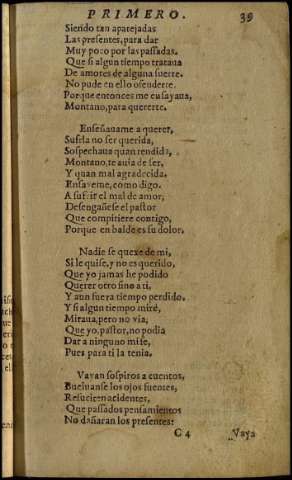 PRIMERO. 39
Siendo tan aparejadas
Las presentes, para dar
Muy poco por las passadas.
Que si algun tiempo trataua
De amores de alguna suerte.
No pude en ello ofenderte.
Porque entonces me ensayaua,
Montano, para quererte.
Enseñauame a querer,
Sufria no ser querida,
Sospechaua quan rendida,
Montano, te auia de ser,
Y quan mal agradecida.
Ensayeme, como digo.
A sufrir el mal de amor,
Desengañese el pastor
Que compitiere contigo,
Porque en balde es su dolor.
Nadie se quexe de mi,
Si le quise, y no es querido,
Que yo jamas he podido
Querer otro sino a ti,
Y aun fuera tiempo perdido.
Y si algun tiempo miré,
Miraua, pero no via,
Que yo, pastor, no podia
Dar a ninguno mi fe,
Pues para ti la tenia.
Vayan sospiros a cuentos,
Bueluanse los ojos fuentes,
Resuciten acidentes,
Que passados pensamientos
No dañaran los presentes:
C 4 Vaya